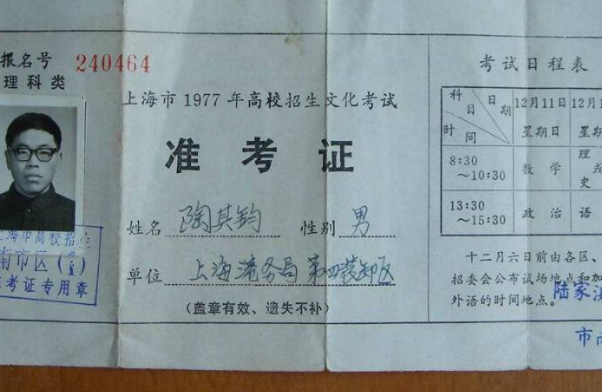 报名号 240464
理科类
上海市1977年高校招生文化考试
准考证
姓名 陶其钧 性别 男
单位 上海港务局第四装卸区
(盖章有效、遗失不补)
上海市高校招
南市区(1)
考证专用章
考试日程表
科目 日期 时间 12月11日 星期日 12月1 星期
8:30～10:30 数学 理 史
13:30～15:30 政治 语
十二月六日前由各区、
招委会公布试场地点和加
外语的时间地点。
陆家浜
市南